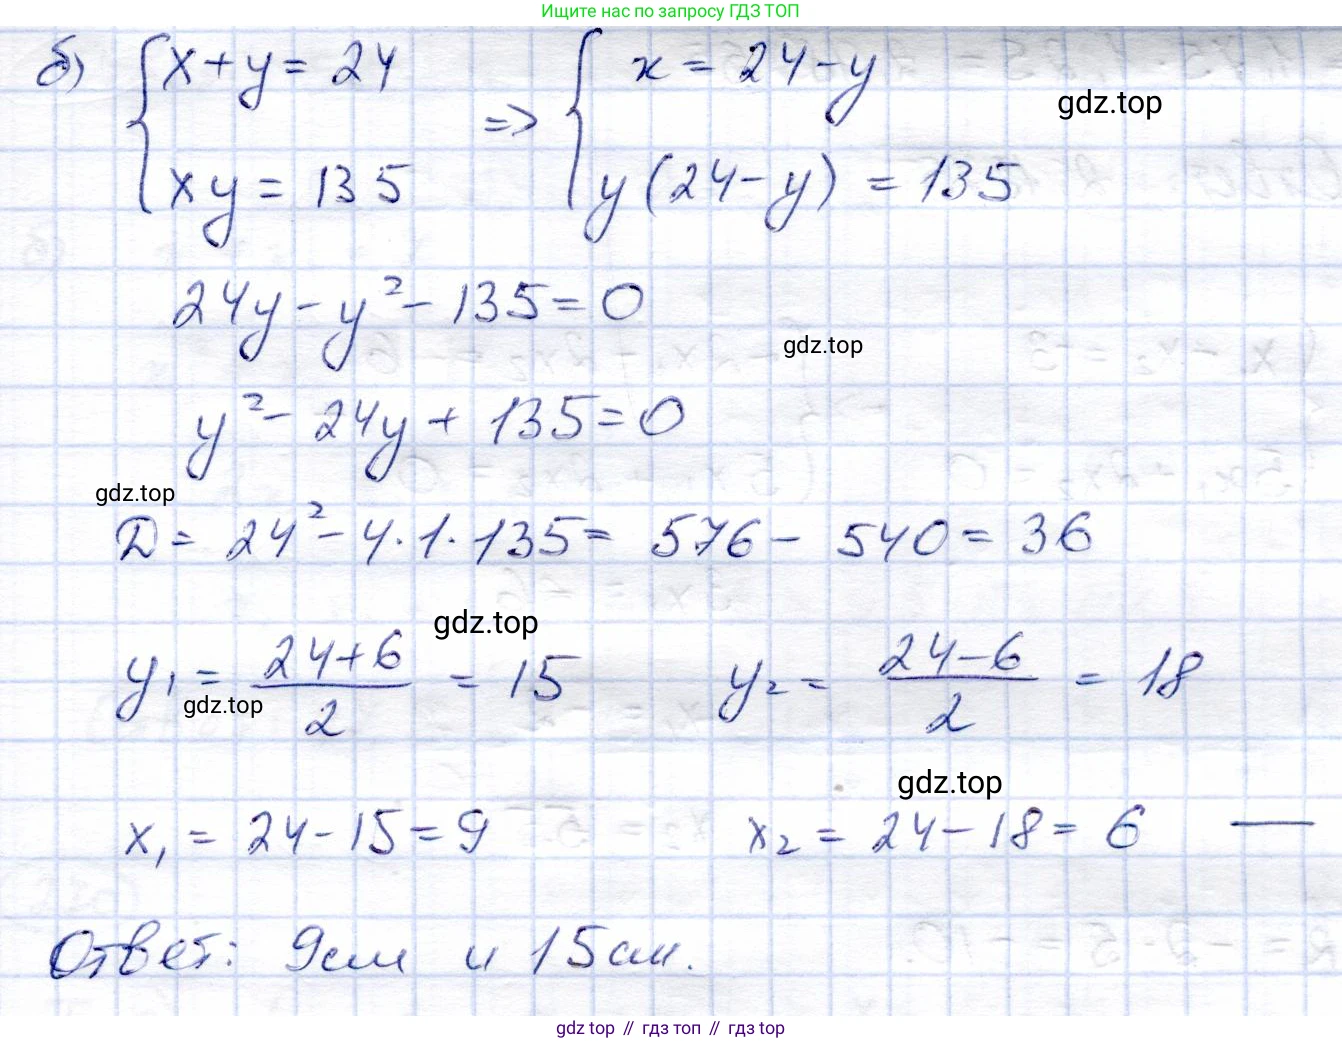 Ищите нас по запросу ГДЗ ТОП
б) { x + y = 24 => { x = 24 - y
xy = 135 y(24 - y) = 135
gdz.top
24y - y² - 135 = 0
gdz.top
y² - 24y + 135 = 0
gdz.top
D = 24² - 4·1·135 = 576 - 540 = 36
gdz.top
y₁ = (24+6)/2 = 15 y₂ = (24-6)/2 = 18
gdz.top
gdz.top
x₁ = 24 - 15 = 9 x₂ = 24 - 18 = 6 —
Ответ: 9см и 15см.
gdz top // гдз топ // гдз top